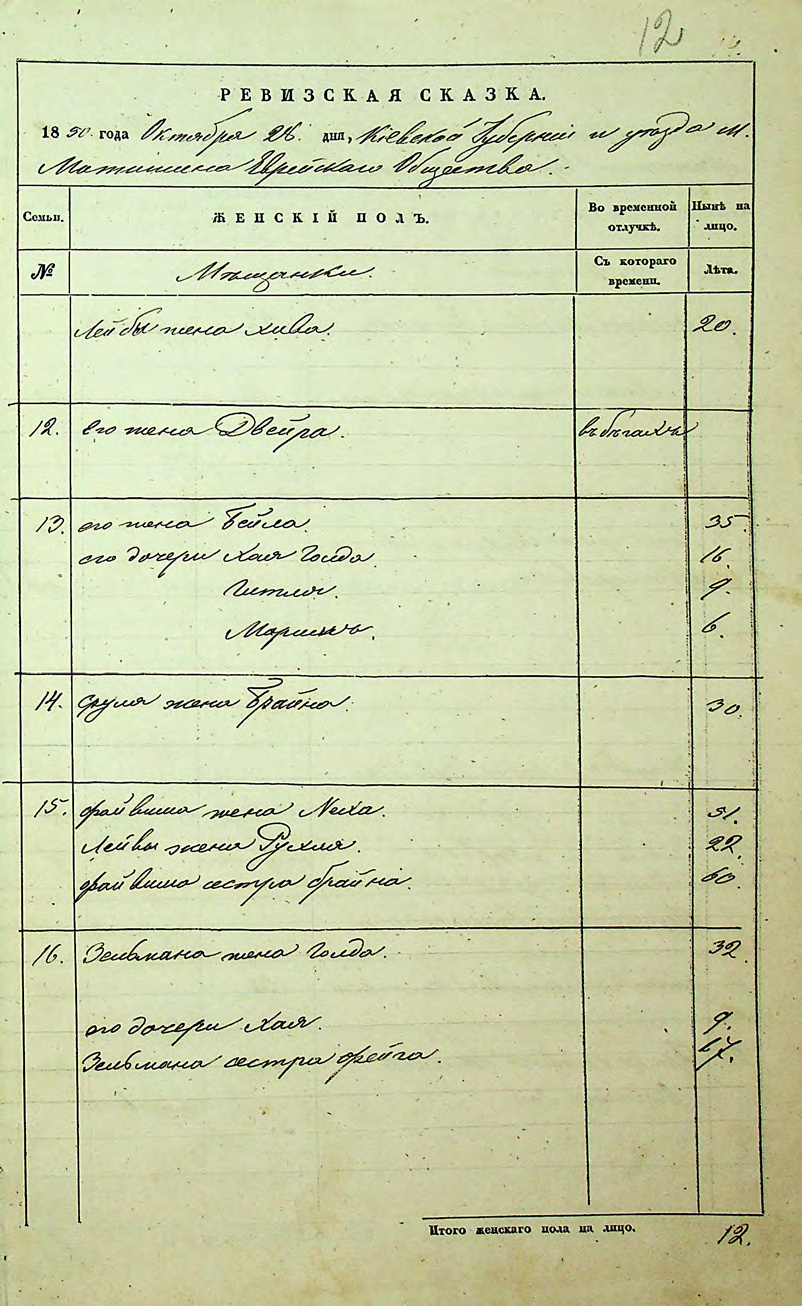 12
РЕВИЗСКАЯ СКАЗКА.
1850 года Октября 28 дня, Кіевской Губерніи и уезда м.
Мотишина Еврейскаго Общества.
Семьи. ЖЕНСКІЙ ПОЛЪ. Во временной отлучкѣ. Нынѣ на лицо.
№ Мѣщанки. Съ котораго времени. Лѣта.
Лейбы жена Хива. 20.
12. его жена Двейра. въ бѣгахъ
13. его жена Бейла. 35.
его дочери Хая Голда 16.
Гитля. 9.
6.
14. Сруля жена Брайна. 30.
15. Файвиша жена Неха. 51.
Лейвы жена Рухля. 22.
Файвиша сестра Брайна. 60.
16. Зельмана жена Голда. 32.
его дочери Хая. 9.
Зельмана сестра Фейга. 17.
Итого женскаго пола на лицо. 12.